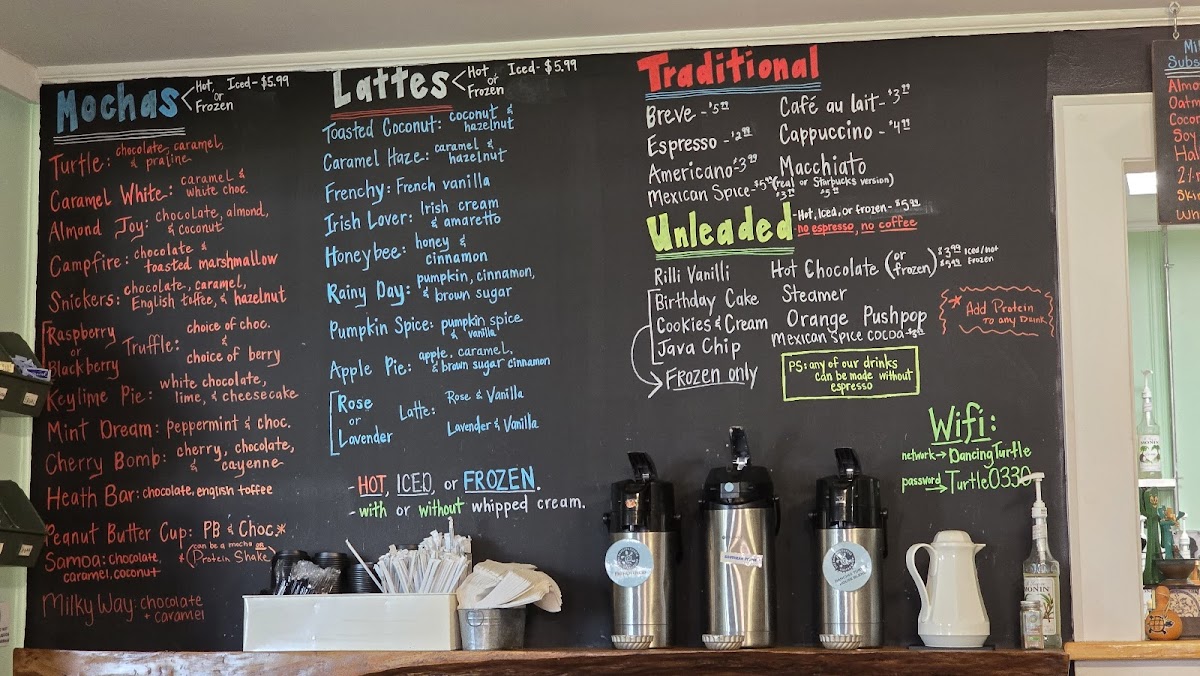 Mochas
Hot, Iced - $5.99
or
Frozen
Turtle: chocolate, caramel,
& praline
Caramel White: caramel &
white choc.
Almond Joy: chocolate, almond,
& coconut
Campfire: chocolate &
toasted marshmallow
Snickers: chocolate, caramel,
English toffee, & hazelnut
Raspberry
or
Blackberry
Truffle: choice of choc.
&
choice of berry
Keylime Pie: white chocolate,
lime, & cheesecake
Mint Dream: peppermint & choc.
Cherry Bomb: cherry, chocolate,
& cayenne
Heath Bar: chocolate, english toffee
Peanut Butter Cup: PB & Choc.*
(can be a mocha OR
Protein Shake)
Samoa: chocolate,
caramel, coconut
Milky Way: chocolate
+ caramel
Lattes
Hot Iced - $5.99
or
Frozen
Toasted Coconut: coconut &
hazelnut
Caramel Haze: caramel &
hazelnut
Frenchy: French vanilla
Irish Lover: Irish cream
& amaretto
Honeybee: honey &
cinnamon
Rainy Day: pumpkin, cinnamon,
& brown sugar
Pumpkin Spice: pumpkin spice
& vanilla
Apple Pie: apple, caramel,
& brown sugar cinnamon
Rose
or
Lavender
Latte: Rose & Vanilla
Lavender & Vanilla
- HOT, ICED, or FROZEN.
- with or without whipped cream.
Traditional
Breve - $5.99
Espresso - $2.99
Americano - $3.99
Mexican Spice - $5.99
Café au lait - $3.99
Cappuccino - $4.99
Macchiato
(real or Starbucks version)
Unleaded
- Hot, Iced, or frozen - $5.99
no espresso, no coffee
Rilli Vanilli
Birthday Cake
Cookies & Cream
Java Chip
Frozen only
Hot Chocolate (or frozen) $3.99 Iced/hot
$5.99 Frozen
Steamer
Orange Pushpop
Mexican Spice Cocoa
PS: any of our drinks
can be made without
espresso
* Add Protein
to any Drink
Wifi:
network → DancingTurtle
password → Turtle0330
MONIN